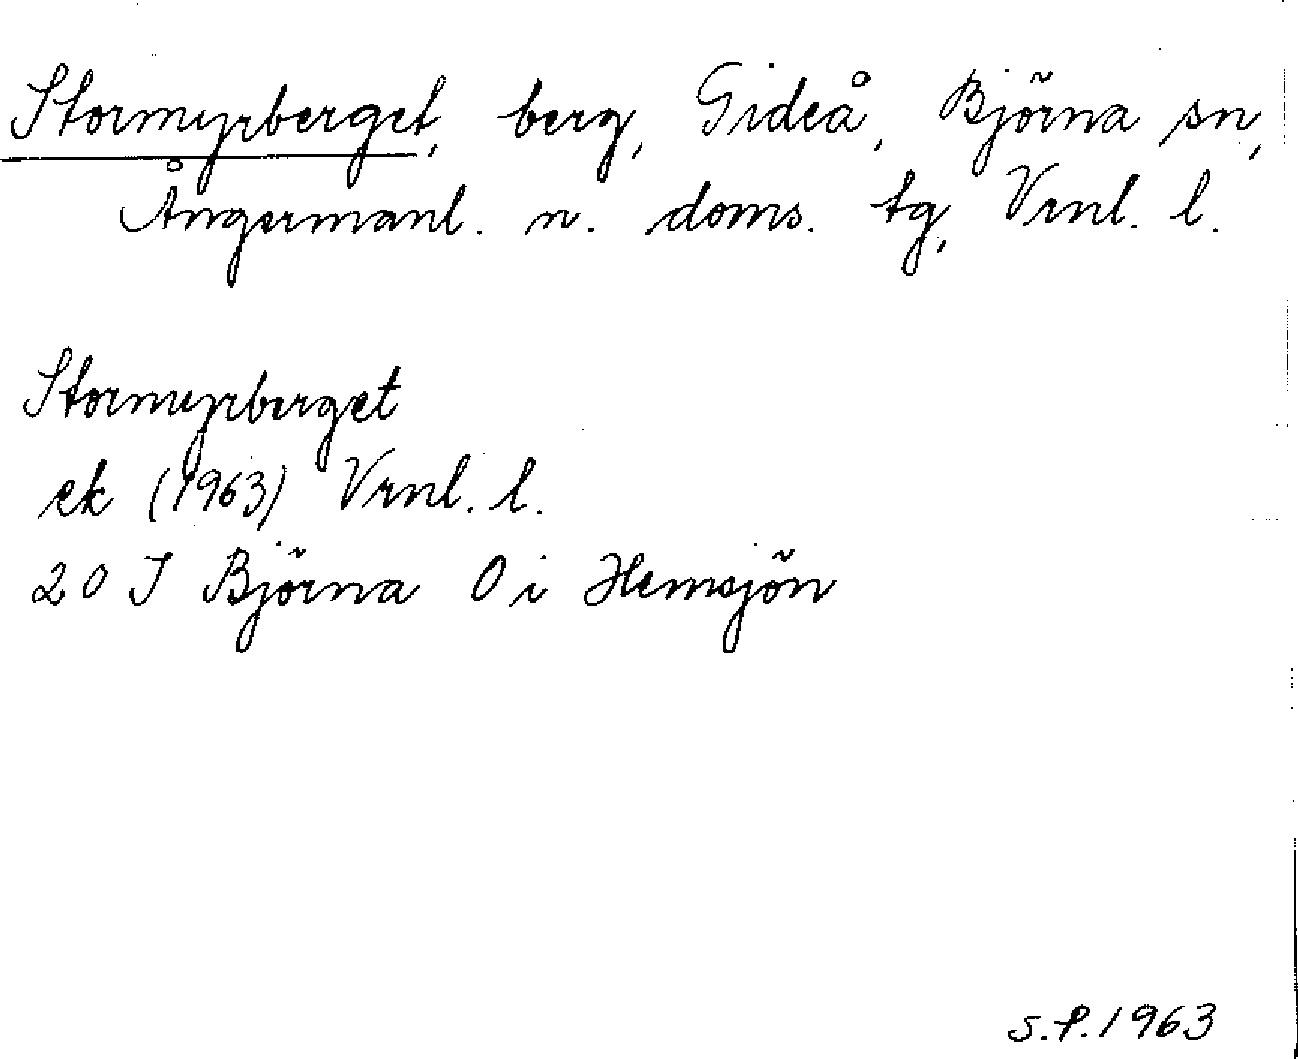 Stormyrberget, berg, Gideå, Björna sn,
Ångermanl. n. doms. tg, Vrnl. l.
Stormyrberget
ek (1963) Vrnl. l.
20 J Björna O i Hemsjön
S.P. 1963